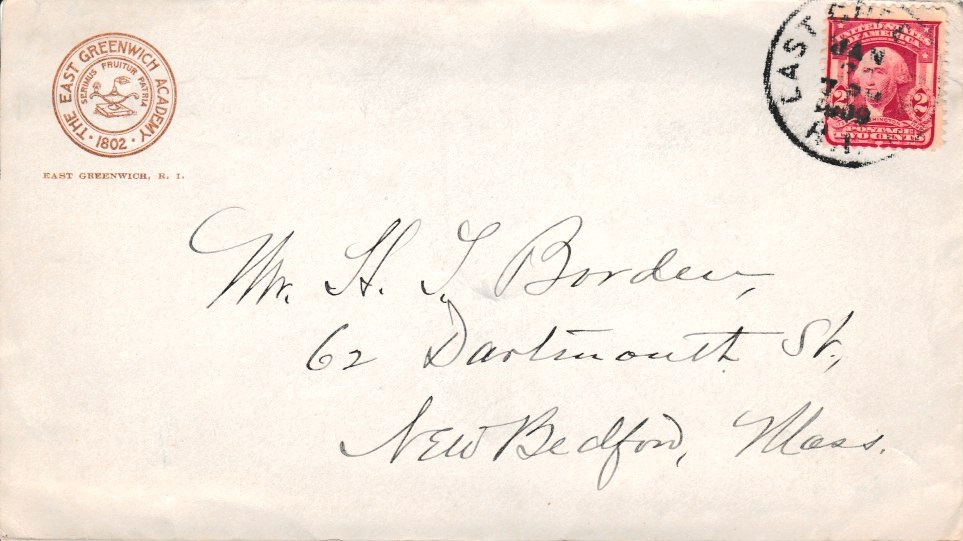 THE EAST GREENWICH ACADEMY
SERIMUS FRUITUR PATRIA
1802
EAST GREENWICH, R. I.
EAST
JAN
R.I.
UNITED STATES
OF AMERICA
2 2
POSTAGE
TWO CENTS
Mr. H. I. Borden,
62 Dartmouth St.,
New Bedford, Mass.